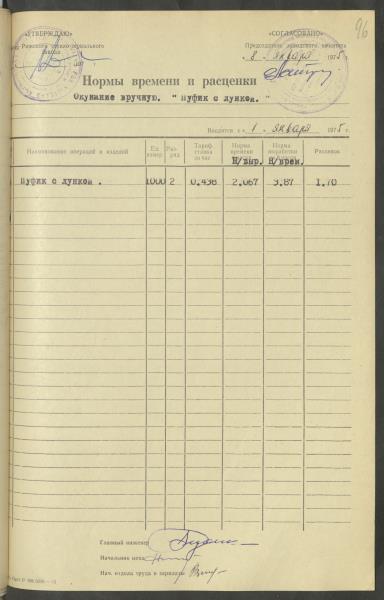 96
«УТВЕРЖДАЮ»
«СОГЛАСОВАНО»
Председатель заводского комитета
8 января 1975 г.
Нормы времени и расценки
Окунание вручную. " Пуфик с лункой. "
Вводятся с « 1 » января 1975 г.
Наименование операций и изделий
Ед. измер.
Раз-ряд
Тариф. ставка за час
Норма времени
Норма выработки
Расценок
Н/выр. Н/врем.
Пуфик с лункой . 1000 2 0.438 2.067 3.87 1.70
Главный инженер
Начальник цеха
Нач. отдела труда и зарплаты